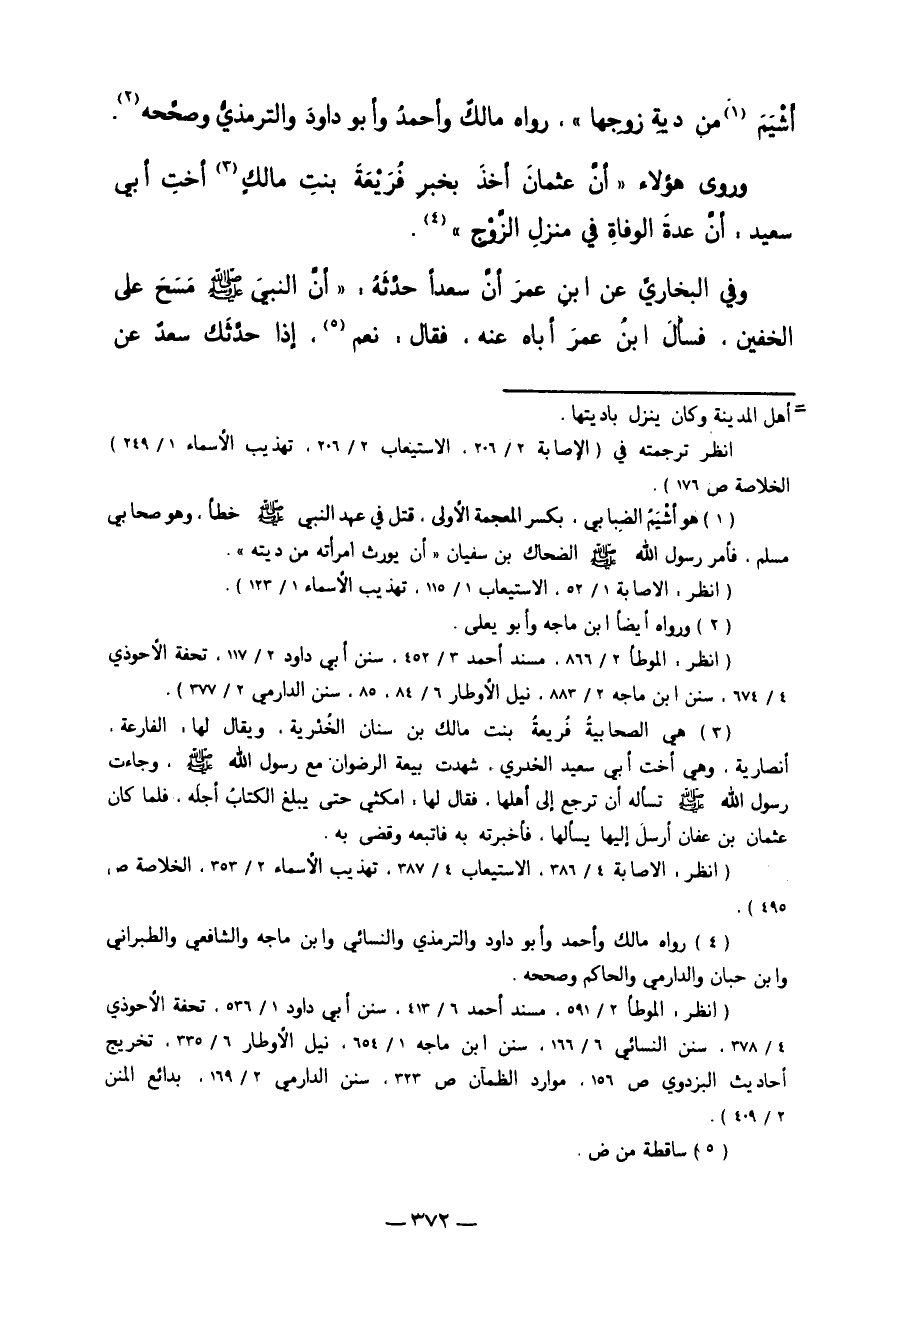 أشْيَمَ (١) من دية زوجها » ، رواه مالكٌ وأحمدُ وأبو داودَ والترمذيُّ وصحَّحه (٢) .
وروى هؤلاء « أنَّ عثمانَ أخذَ بخبرِ فُرَيْعَةَ بنتِ مالكٍ (٣) أختِ أبي
سعيد ، أنَّ عدةَ الوفاةِ في منزلِ الزَّوْجِ » (٤) .
وفي البخاريِّ عن ابنِ عمرَ أنَّ سعداً حدَّثَهُ ، « أنَّ النبيَ ﷺ مَسَحَ على
الخفين ، فسألَ ابنُ عمرَ أباه عنه ، فقال ، نعم (٥) ، إذا حدَّثَك سعدٌ عن
= أهل المدينة وكان ينزل باديتها .
انظر ترجمته في ( الإصابة ٢ / ٢٠٦ ، الاستيعاب ٢ / ٢٠٦ ، تهذيب الأسماء ١ / ٢٤٩ )
الخلاصة ص ١٧٦ ) .
( ١ ) هو أشْيَمُ الضبابي ، بكسر المعجمة الأولى ، قتل في عهد النبي ﷺ خطأ ، وهو صحابي
مسلم ، فأمر رسول الله ﷺ الضحاك بن سفيان « أن يورث امرأته من ديته » .
( انظر ، الاصابة ١ / ٥٢ ، الاستيعاب ١ / ١١٥ ، تهذيب الأسماء ١ / ١٢٣ ) .
( ٢ ) ورواه أيضاً ابن ماجه وأبو يعلى .
( انظر ، الموطأ ٢ / ٨٦٦ ، مسند أحمد ٣ / ٤٥٢ ، سنن أبي داود ٢ / ١١٧ ، تحفة الأحوذي
٤ / ٦٧٤ ، سنن ابن ماجه ٢ / ٨٨٣ ، نيل الأوطار ٦ / ٨٤ ، ٨٥ ، سنن الدارمي ٢ / ٣٧٧ ) .
( ٣ ) هي الصحابيةُ فُريعةُ بنت مالك بن سنان الخُدْرية ، ويقال لها ، الفارعة ،
أنصارية ، وهي أخت أبي سعيد الخدري ، شهدت بيعة الرضوان مع رسول الله ﷺ ، وجاءت
رسول الله ﷺ تسأله أن ترجع إلى أهلها ، فقال لها ، امكثي حتى يبلغ الكتابُ أجلَه ، فلما كان
عثمان بن عفان أرسلَ إليها يسألها ، فأخبرته به فاتبعه وقضى به .
( انظر ، الاصابة ٤ / ٣٨٦ ، الاستيعاب ٤ / ٣٨٧ ، تهذيب الأسماء ٢ / ٣٥٣ ، الخلاصة ص
٤٩٥ ) .
( ٤ ) رواه مالك وأحمد وأبو داود والترمذي والنسائي وابن ماجه والشافعي والطبراني
وابن حبان والدارمي والحاكم وصححه .
( انظر ، الموطأ ٢ / ٥٩١ ، مسند أحمد ٦ / ٤١٣ ، سنن أبي داود ١ / ٥٣٦ ، تحفة الأحوذي
٤ / ٣٧٨ ، سنن النسائي ٦ / ١٦٦ ، سنن ابن ماجه ١ / ٦٥٤ ، نيل الأوطار ٦ / ٣٣٥ ، تخريج
أحاديث البزدوي ص ١٥٦ ، موارد الظمآن ص ٣٢٣ ، سنن الدارمي ٢ / ١٦٩ ، بدائع المنن
٢ / ٤٠٩ ) .
( ٥ ) ساقطة من ض .
— ٣٧٢ —